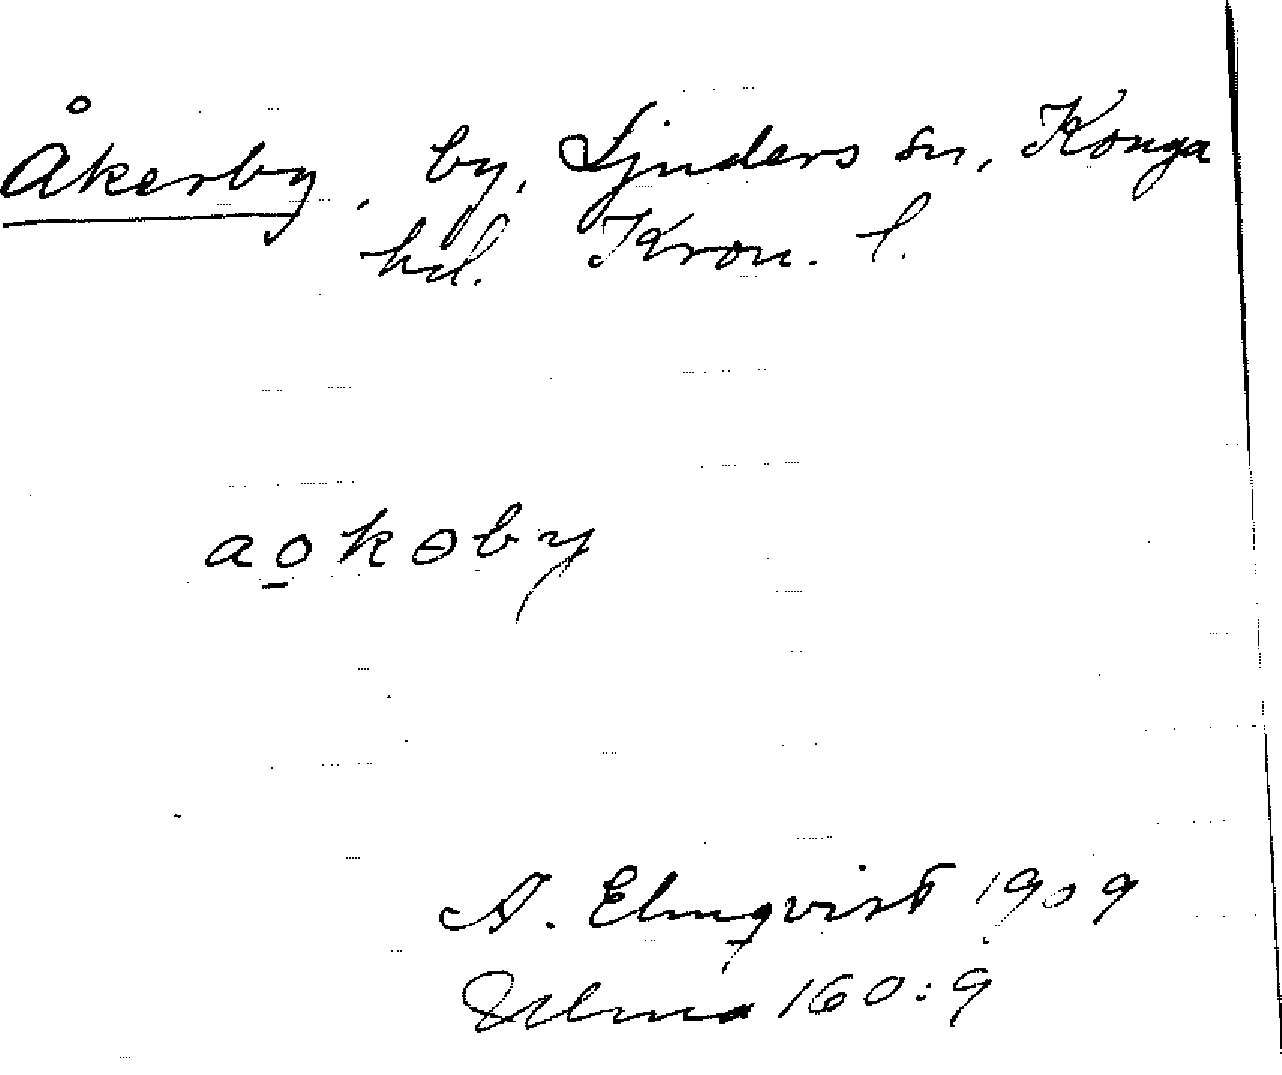 Åkerby, by, Ljuders sn, Konga
hd. Kron. l.
ao̲kɵby
A. Elmqvist 1909
160:9